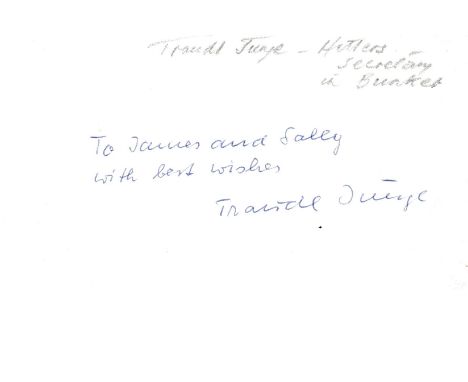 Traudl Junge - Hitlers
secretary
in Bunker
To James and Sally
with best wishes
Traudl Junge